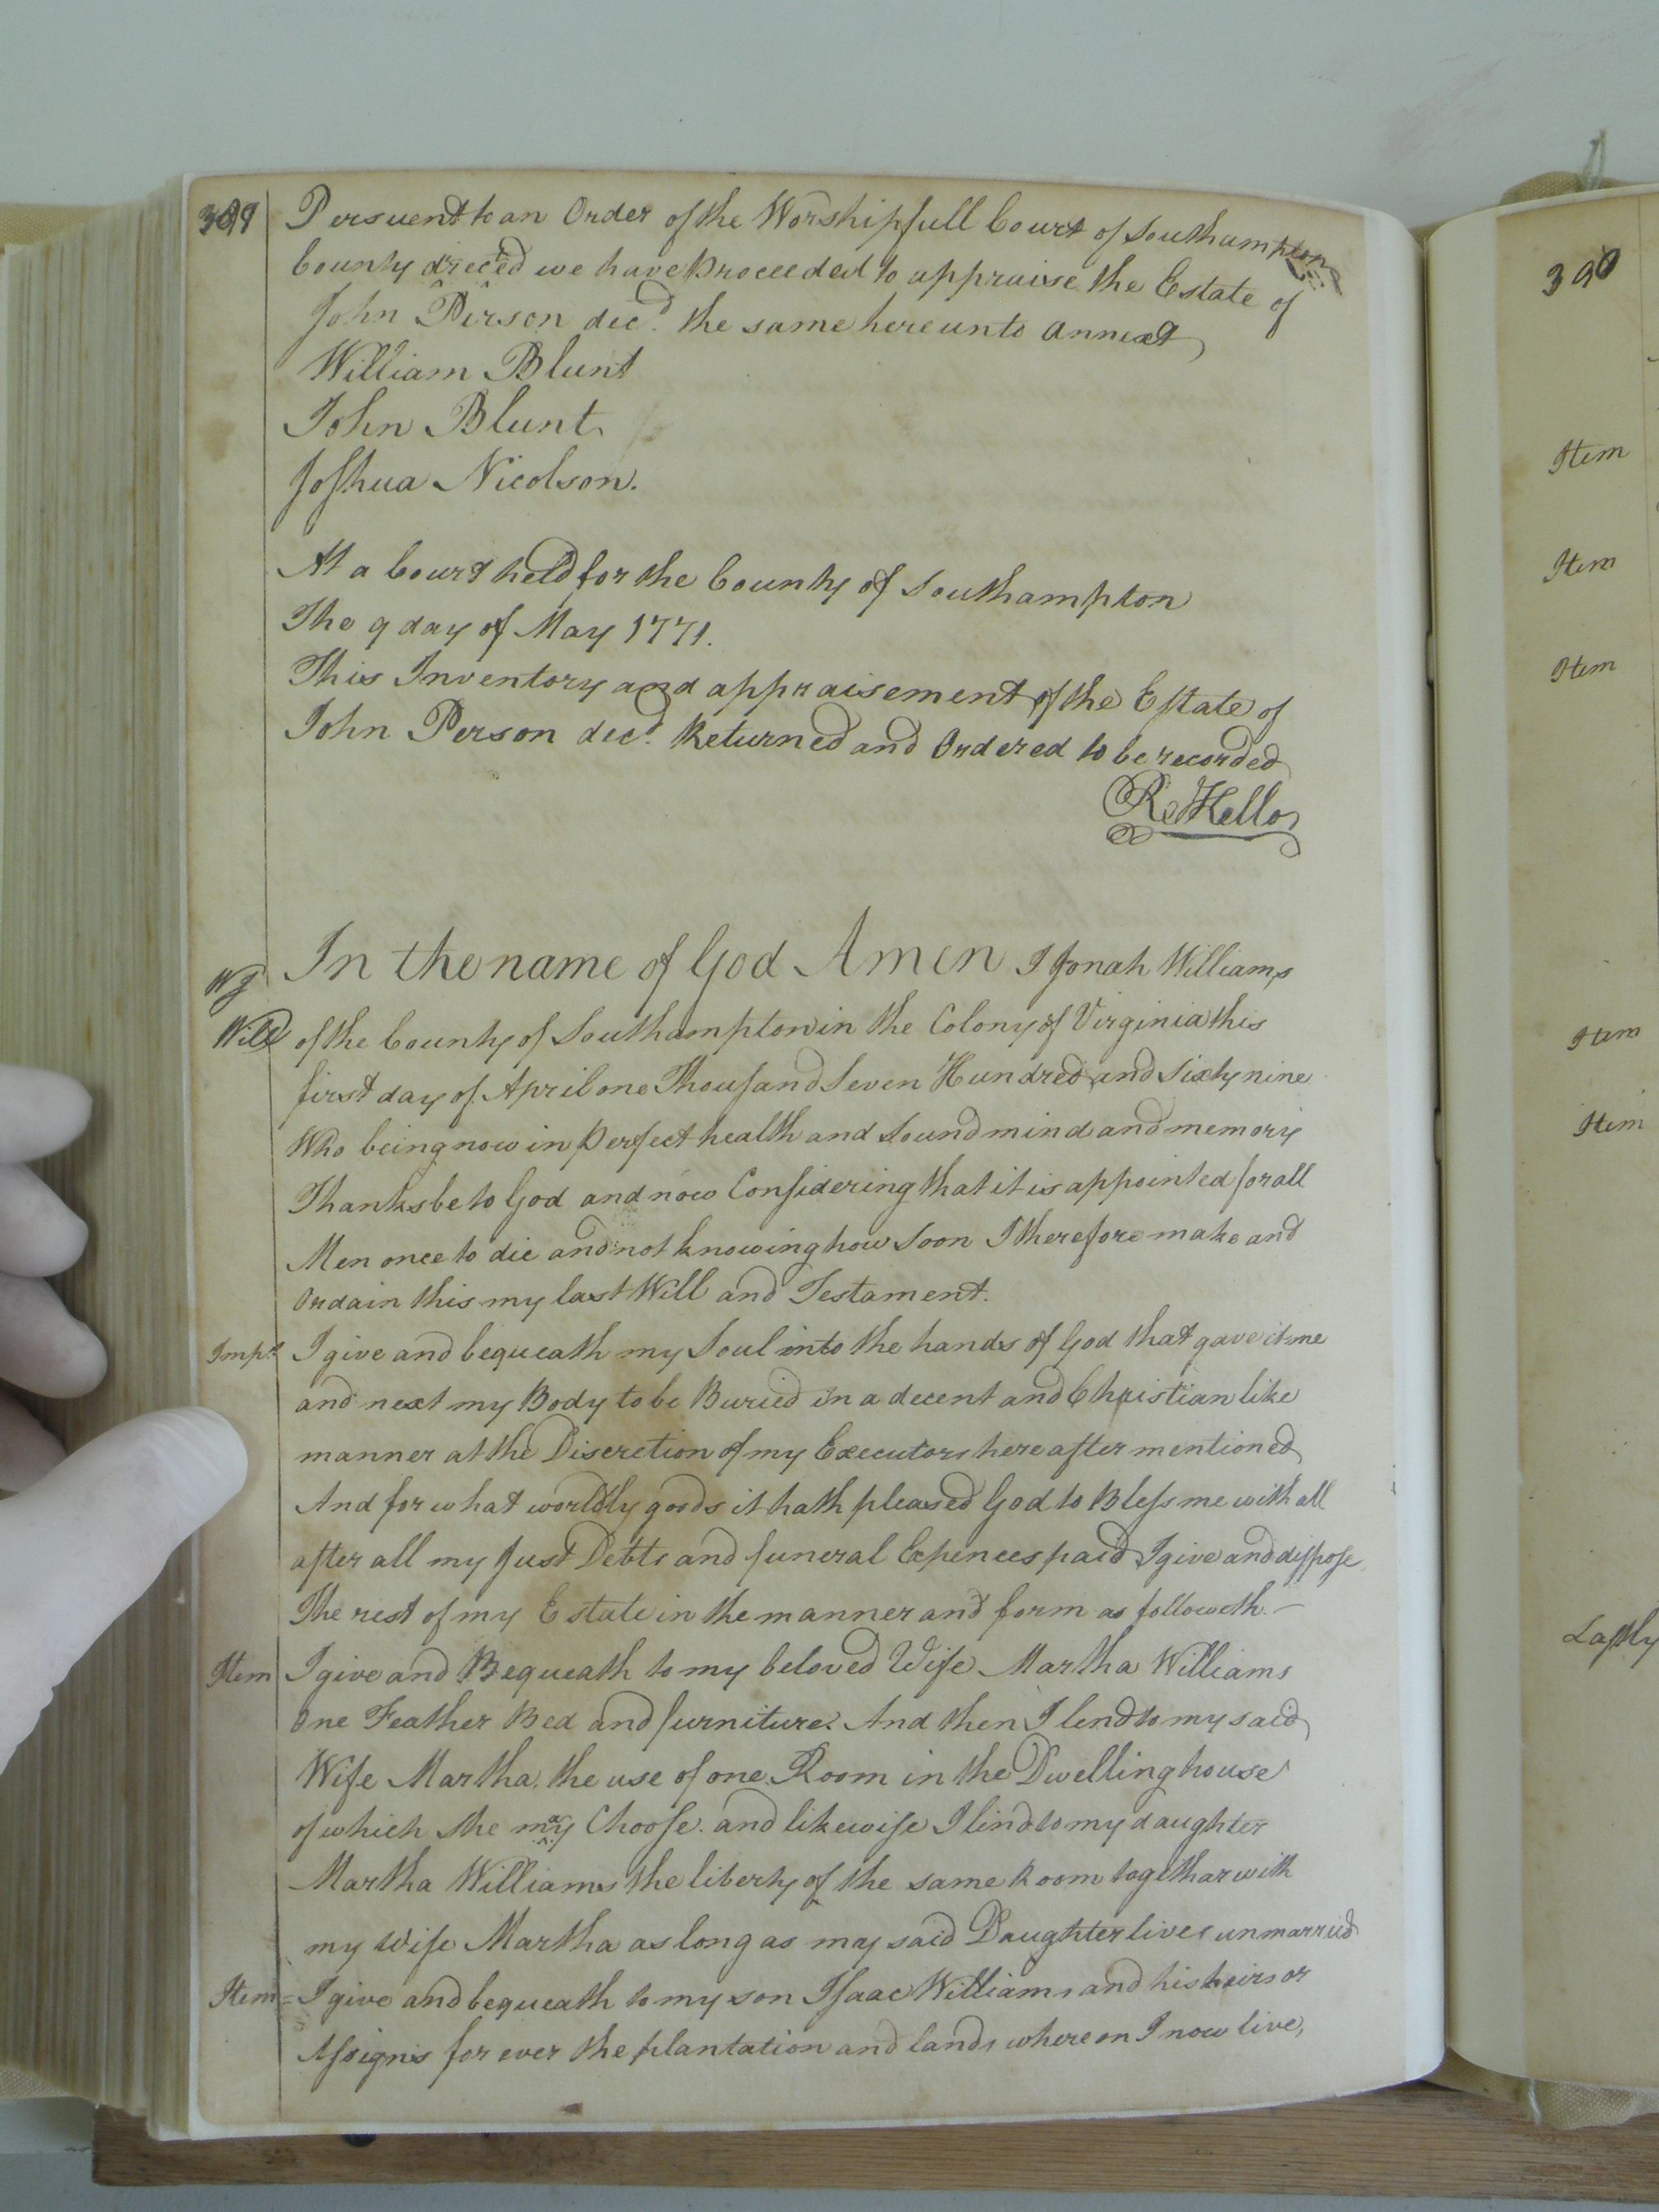 Persuent to an Order of the Worshipfull Court of Southampton
County directed we have Proceeded to appraise the Estate of
John Person decd. the same hereunto annext
William Blunt
John Blunt
Joshua Nicolson.
At a Court held for the County of Southampton
The 9 day of May 1771.
This Inventory and appraisement of the Estate of
John Person decd. Returned and Ordered to be recorded
R. Kello
In the name of God Amen I Jonah Williams
Will of the County of Southampton in the Colony of Virginia this
first day of April one Thousand Seven Hundred and Sixty nine
Who being now in Perfect health and Sound mind and memory
Thanks be to God and now Considering that it is appointed for all
Men once to die and not knowing how Soon I therefore make and
Ordain this my last Will and Testament.
Imps. I give and bequeath my Soul into the hands of God that gave it me
and next my Body to be Buried in a decent and Christian like
manner at the Discretion of my Executors hereafter mentioned
And for what worldly goods it hath pleased God to Bless me with all
after all my Just Debts and funeral Expences paid I give and dispose
The rest of my Estate in the manner and form as followeth.
Item I give and Bequeath to my beloved Wife Martha Williams
One Feather Bed and furniture. And then I lend to my said
Wife Martha, the use of one Room in the Dwelling house
of which she may Choose. and likewise I lend to my daughter
Martha Williams the liberty of the same Room togethar with
my Wife Martha as long as may said Daughter lives unmarried
Item = I give and bequeath to my son Isaac Williams and his heirs or
Assigns for ever the plantation and lands whereon I now live,
390
Item
Item
Item
Item
Item
Lastly